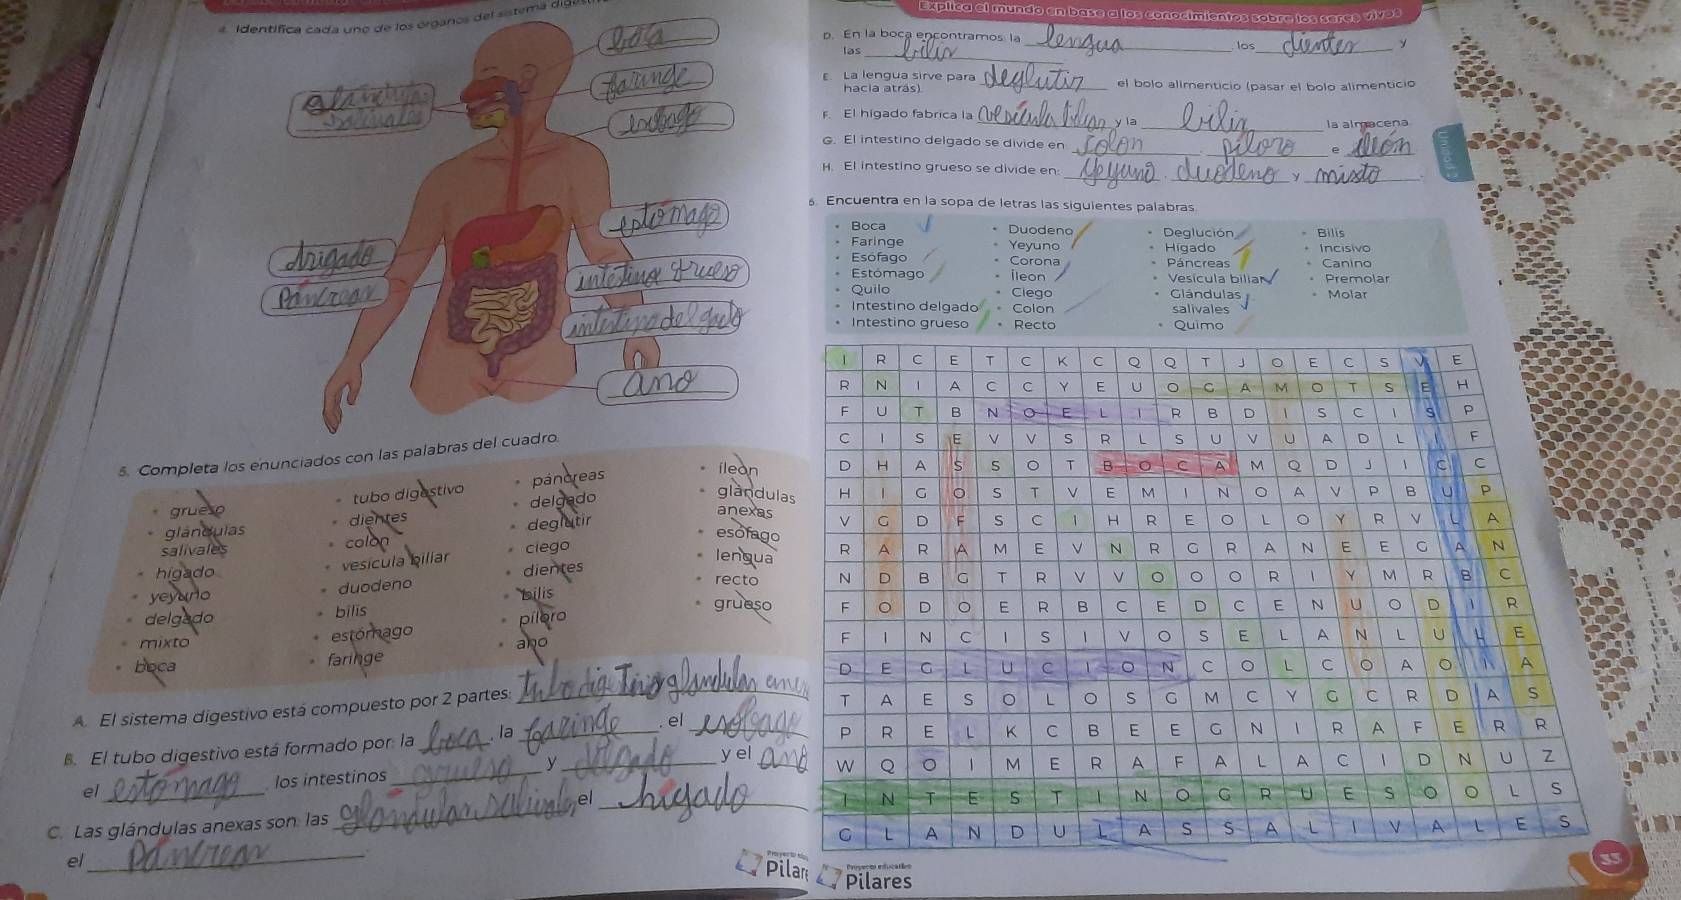 4. Identifica cada uno de los órganos del sistema
boca
faringe
glandulas
salivales
esofago
estomago
higado
intestino grueso
Pancreas
intestino delgado
ano
5. Completa los enunciados con las palabras del cuadro.
• grueso
• glándulas salivales
• hígado
• yeyuno
• delgado
• mixto
• boca
• tubo digestivo
• dientes
• colon
• vesícula biliar
• duodeno
• bilis
• estómago
• faringe
• páncreas
• delgado
• deglutir
• ciego
• dientes
• bilis
• píloro
• ano
• íleon
• glándulas anexas
• esófago
• lengua
• recto
• grueso
A. El sistema digestivo está compuesto por 2 partes: Tubo digestivo y glandulas
B. El tubo digestivo está formado por: la boca, la faringe, el esofago
el estomago, los intestinos grueso y delgado y el ano
C. Las glándulas anexas son: las glandulas salivales, el higado
el Pancreas.
Proyecto educativo
Pilares
Explica el mundo en base a los conocimientos sobre los seres vivos
D. En la boca encontramos: la lengua, los dientes y
las bilis
E. La lengua sirve para deglutir el bolo alimenticio (pasar el bolo alimenticio
hacia atrás).
F. El hígado fabrica la vesicula biliar y la bilis la almacena.
G. El intestino delgado se divide en colon, piloro e ileon
H. El intestino grueso se divide en: Yeyuno, duodeno y mixto.
Unidad 2
6. Encuentra en la sopa de letras las siguientes palabras.
• Boca
• Faringe
• Esófago
• Estómago
• Quilo
• Intestino delgado
• Intestino grueso
• Duodeno
• Yeyuno
• Corona
• Íleon
• Ciego
• Colon
• Recto
• Deglución
• Hígado
• Páncreas
• Vesícula biliar
• Glándulas
salivales
• Quimo
• Bilis
• Incisivo
• Canino
• Premolar
• Molar
I R C E T C K C Q Q T J O E C S V E
R N I A C C Y E U O G A M O T S E H
F U T B N O E L I R B D I S C I S P
C I S E V V S R L S U V U A D L I F
D H A S S O T B O C A M Q D J I C C
H I G O S T V E M I N O A V P B U P
V G D F S C I H R E O L O Y R V L A
R A R A M E V N R G R A N E E G A N
N D B G T R V V O O O R I Y M R B C
F O D O E R B C E D C E N U O D I R
F I N C I S I V O S E L A N L U L E
D E G L U C I O N C O L C O A O I A
T A E S O L O S G M C Y G C R D A S
P R E L K C B E E G N I R A F E R R
W Q O I M E R A F A L A C I D N U Z
I N T E S T I N O G R U E S O O L S
G L A N D U L A S S A L I V A L E S
Proyecto educativo
Pilares
33